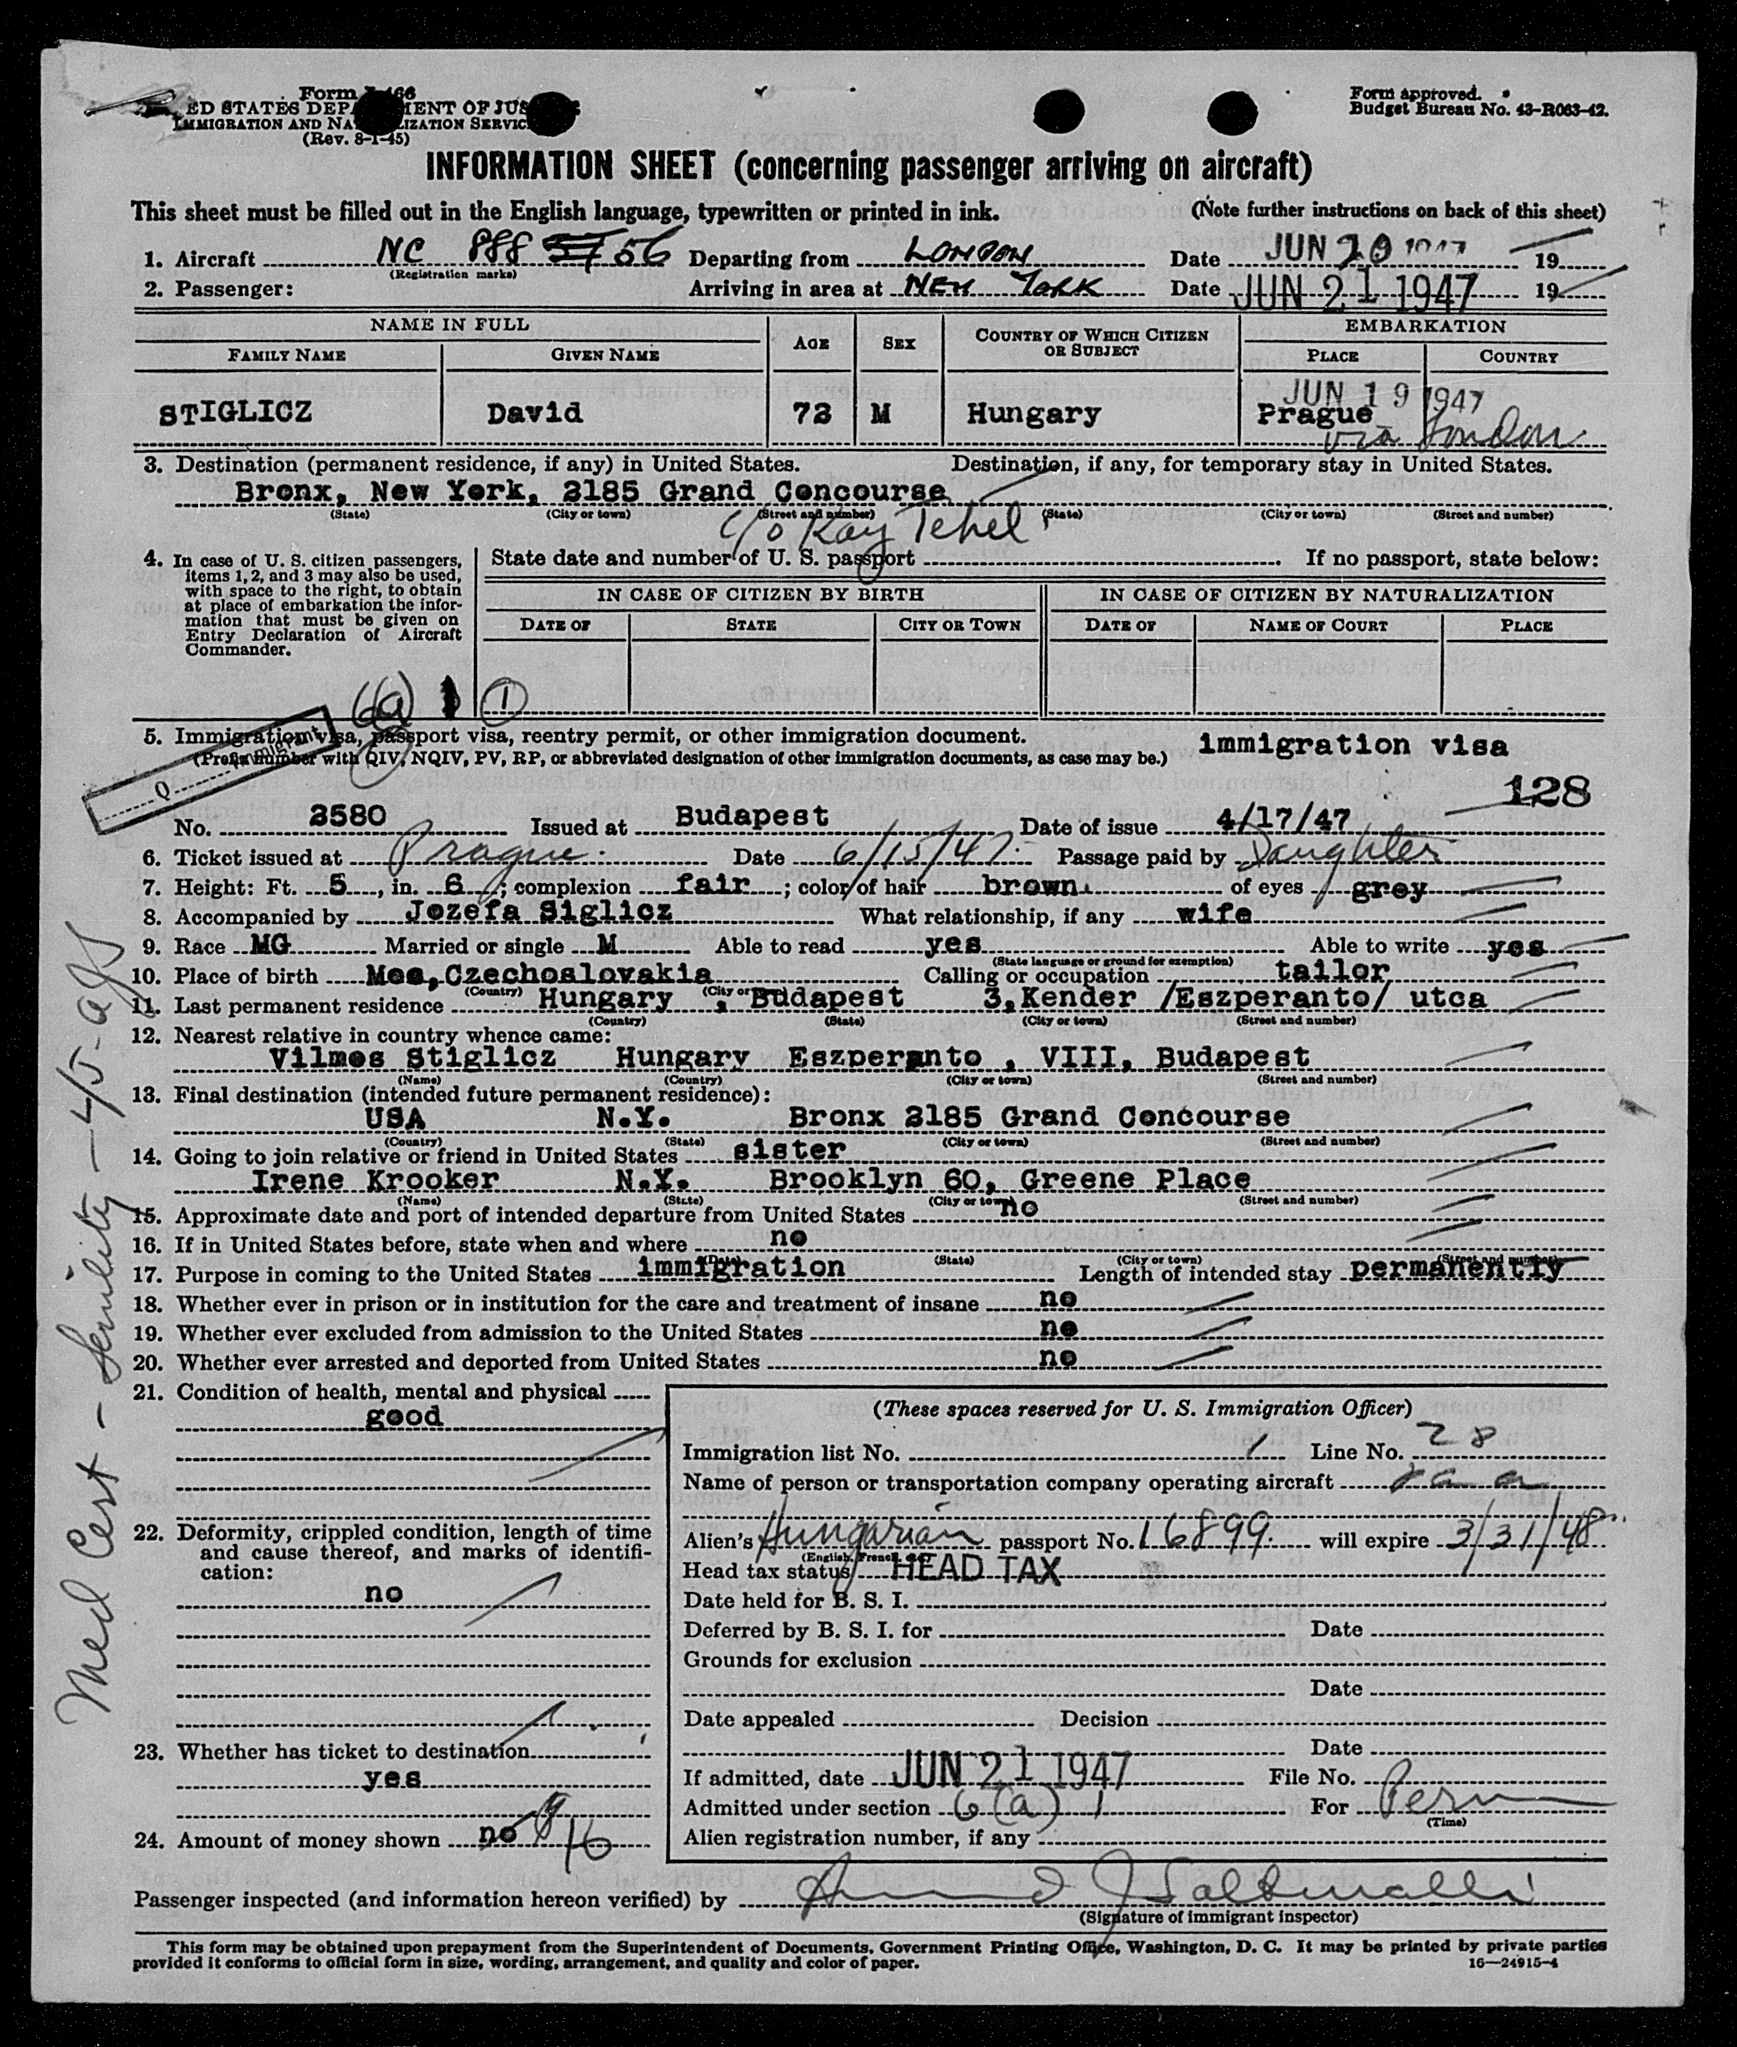 Form I-466
ED STATES DEPA MENT OF JUS
IMMIGRATION AND NA LIZATION SERVIC
(Rev. 8-1-45)
Form approved.
Budget Bureau No. 43-R063-42.
INFORMATION SHEET (concerning passenger arriving on aircraft)
This sheet must be filled out in the English language, typewritten or printed in ink. (Note further instructions on back of this sheet)
1. Aircraft NC 888 56 Departing from LONDON Date JUN 20 1947 19
(Registration marks)
2. Passenger: Arriving in area at NEW YORK Date JUN 21 1947 19
NAME IN FULL AGE SEX COUNTRY OF WHICH CITIZEN OR SUBJECT EMBARKATION
FAMILY NAME GIVEN NAME PLACE COUNTRY
JUN 19 1947
STIGLICZ David 73 M Hungary Prague
via London
3. Destination (permanent residence, if any) in United States. Destination, if any, for temporary stay in United States.
Bronx, New York, 2185 Grand Concourse
(State) (City or town) (Street and number) (State) (City or town) (Street and number)
c/o Kay Tehel
4. In case of U. S. citizen passengers, items 1, 2, and 3 may also be used, with space to the right, to obtain at place of embarkation the information that must be given on Entry Declaration of Aircraft Commander.
State date and number of U. S. passport If no passport, state below:
IN CASE OF CITIZEN BY BIRTH IN CASE OF CITIZEN BY NATURALIZATION
DATE OF STATE CITY OR TOWN DATE OF NAME OF COURT PLACE
6(a) 1
5. Immigration visa, passport visa, reentry permit, or other immigration document. immigration visa
(Prefix number with QIV, NQIV, PV, RP, or abbreviated designation of other immigration documents, as case may be.)
Q Immigrant
128
No. 3580 Issued at Budapest Date of issue 4/17/47
6. Ticket issued at Prague Date 6/15/47 Passage paid by Daughter
7. Height: Ft. 5, in. 6; complexion fair; color of hair brown of eyes grey
8. Accompanied by Jozefa Siglicz What relationship, if any wife
9. Race MG Married or single M Able to read yes Able to write yes
(State language or ground for exemption)
10. Place of birth Mos, Czechoslovakia Calling or occupation tailor
(Country) (City or town)
11. Last permanent residence Hungary, Budapest 3, Kender /Eszperanto/ utca
(Country) (State) (City or town) (Street and number)
12. Nearest relative in country whence came:
Vilmos Stiglicz Hungary Eszperanto, VIII, Budapest
(Name) (Country) (City or town) (Street and number)
13. Final destination (intended future permanent residence):
USA N.Y. Bronx 2185 Grand Concourse
(Country) (State) (City or town) (Street and number)
14. Going to join relative or friend in United States sister
Irene Krooker N.Y. Brooklyn 60, Greene Place
(Name) (State) (City or town) (Street and number)
15. Approximate date and port of intended departure from United States no
16. If in United States before, state when and where no
(Date) (State) (City or town) (Street and number)
17. Purpose in coming to the United States immigration Length of intended stay permanently
18. Whether ever in prison or in institution for the care and treatment of insane no
19. Whether ever excluded from admission to the United States no
20. Whether ever arrested and deported from United States no
21. Condition of health, mental and physical
good
22. Deformity, crippled condition, length of time and cause thereof, and marks of identification:
no
23. Whether has ticket to destination
yes
24. Amount of money shown no 16
(These spaces reserved for U. S. Immigration Officer)
Immigration list No. 1 Line No. 28
Name of person or transportation company operating aircraft
Alien's Hungarian passport No. 16899 will expire 3/31/48
(English, French, etc.)
Head tax status HEAD TAX
Date held for B. S. I.
Deferred by B. S. I. for Date
Grounds for exclusion
Date
Date appealed Decision
Date
If admitted, date JUN 21 1947 File No.
Admitted under section 6(a) 1 For Perm
(Time)
Alien registration number, if any
Passenger inspected (and information hereon verified) by
(Signature of immigrant inspector)
This form may be obtained upon prepayment from the Superintendent of Documents, Government Printing Office, Washington, D. C. It may be printed by private parties
provided it conforms to official form in size, wording, arrangement, and quality and color of paper. 16—24915-4
Med Cert - Senility